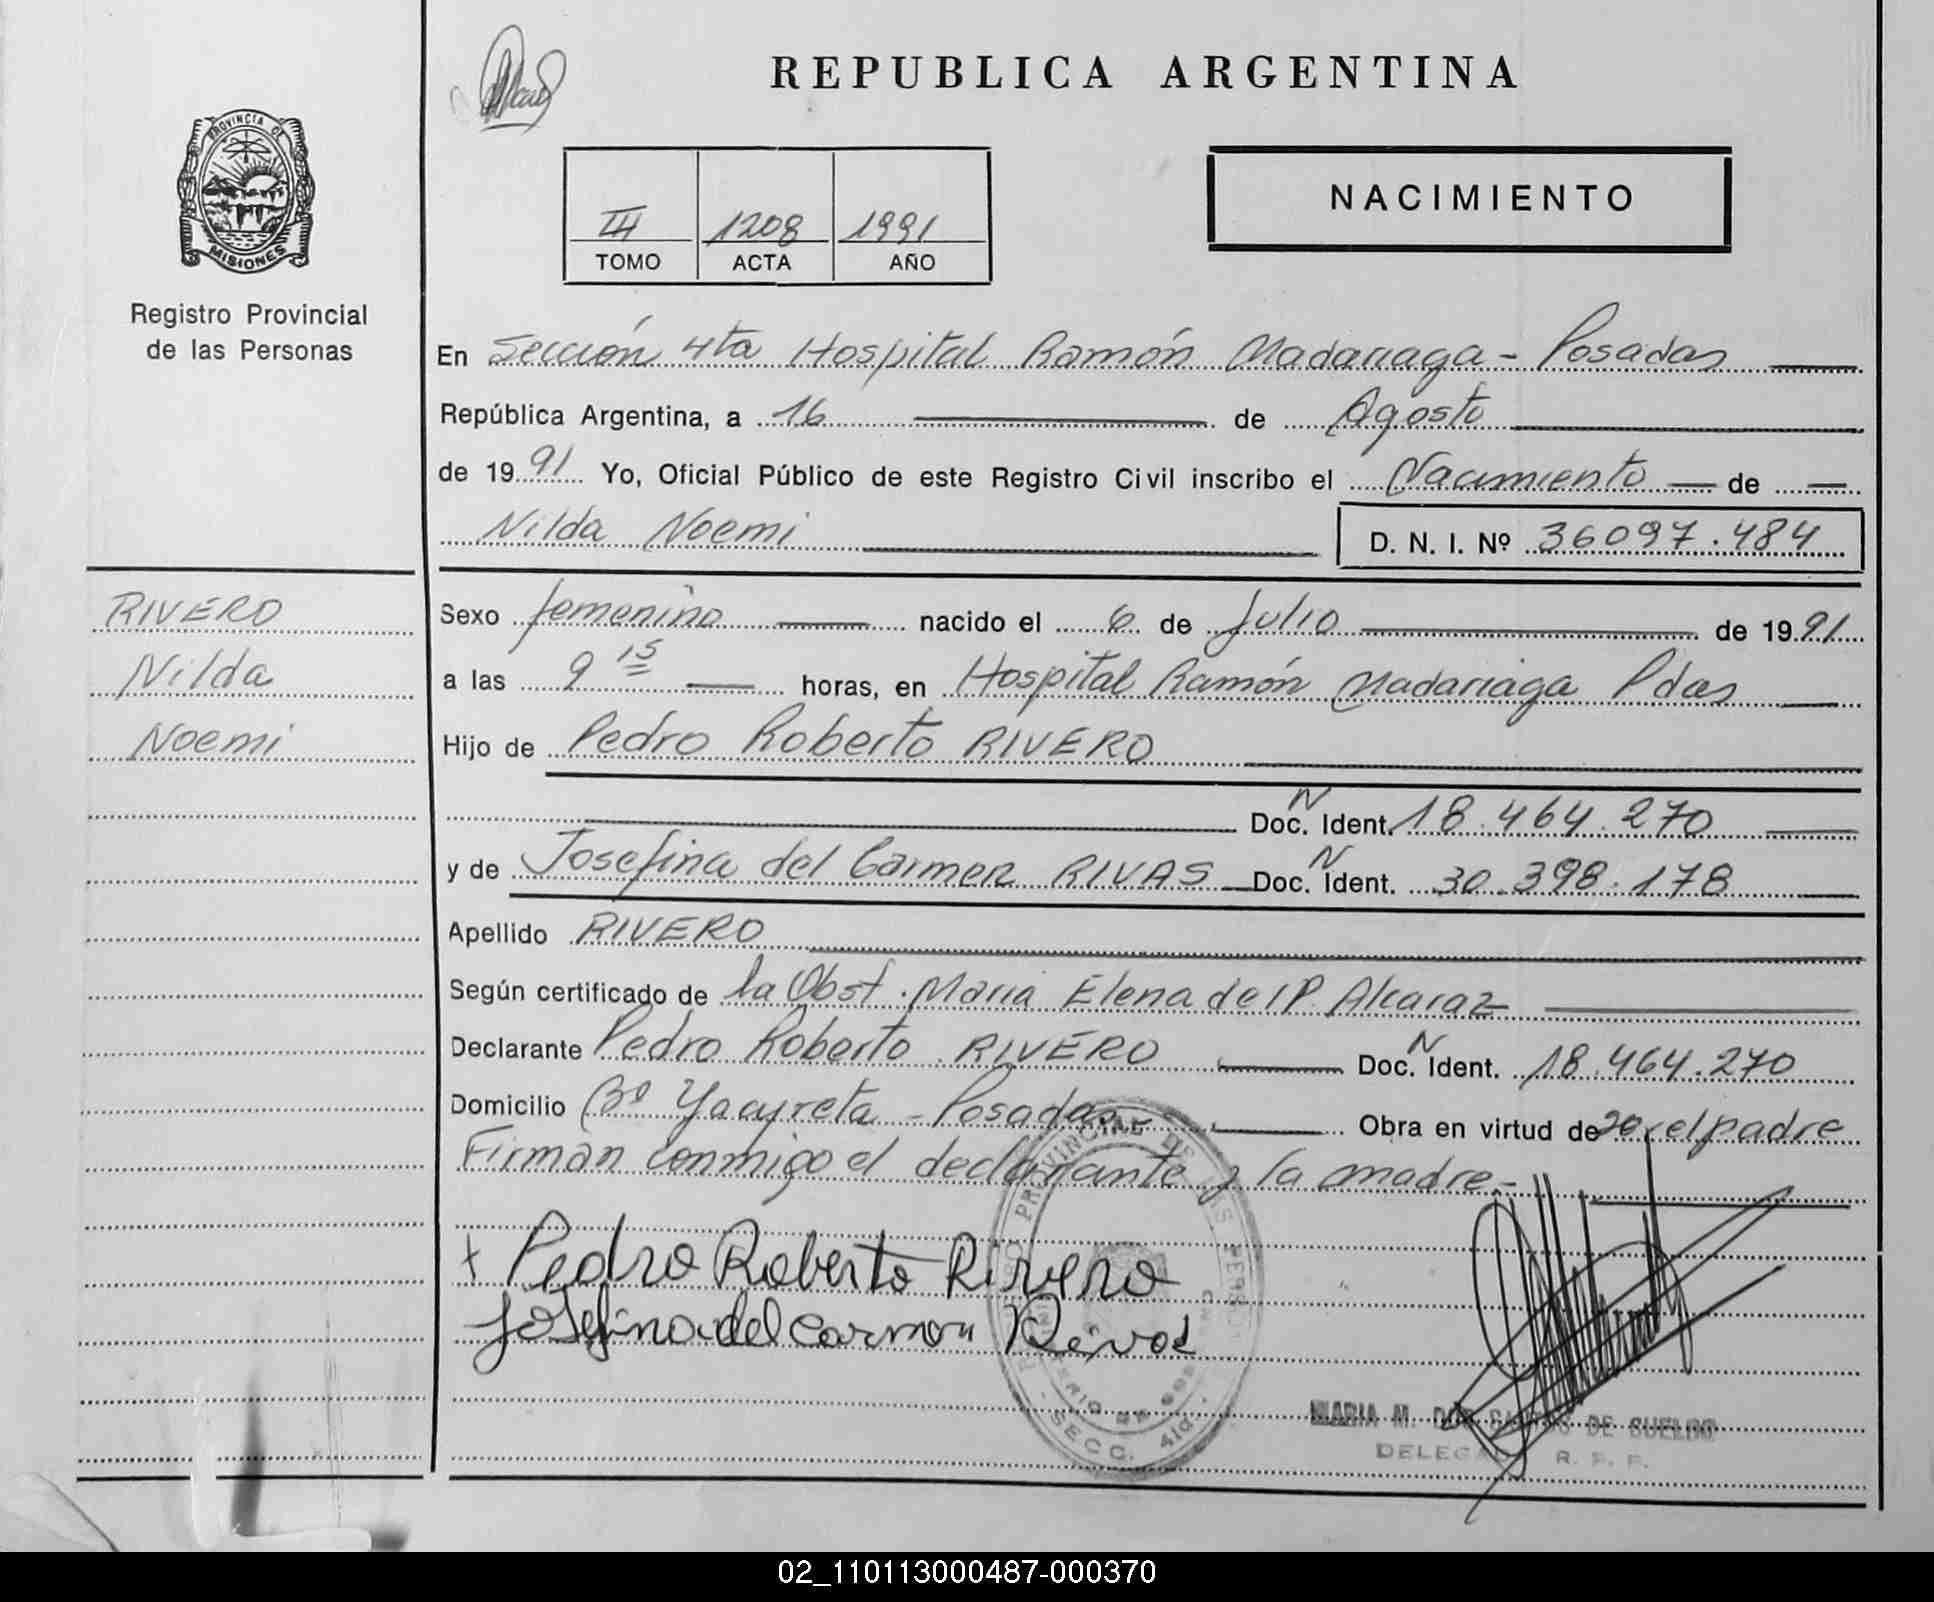 REPUBLICA ARGENTINA
PROVINCIA DE
MISIONES
Registro Provincial
de las Personas
III 1208 1991
TOMO ACTA AÑO
NACIMIENTO
En Sección 4ta Hospital Ramón Madariaga - Posadas
República Argentina, a 16 de Agosto
de 1991 Yo, Oficial Público de este Registro Civil inscribo el Nacimiento de
Nilda Noemi D. N. I. Nº 36097.484
RIVERO
Nilda
Noemi
Sexo femenino nacido el 6 de Julio de 1991
a las 9 15 horas, en Hospital Ramón Madariaga Pdas
Hijo de Pedro Roberto RIVERO
Doc. N Ident. 18.464.270
y de Josefina del Carmen RIVAS Doc. N Ident. 30.398.178
Apellido RIVERO
Según certificado de la Obst. Maria Elena de P. Alcaraz
Declarante Pedro Roberto RIVERO Doc. N Ident. 18.464.270
Domicilio Bº Yacyreta - Posadas Obra en virtud de el padre
Firman conmigo el declarante y la madre.-
Pedro Roberto Rivero
Josefina del carmen Rivas
PROVINCIAL DE LAS PERSON
SECC. 4ta.
MARIA M. DE SUELDO
R. P. P.
02_110113000487-000370